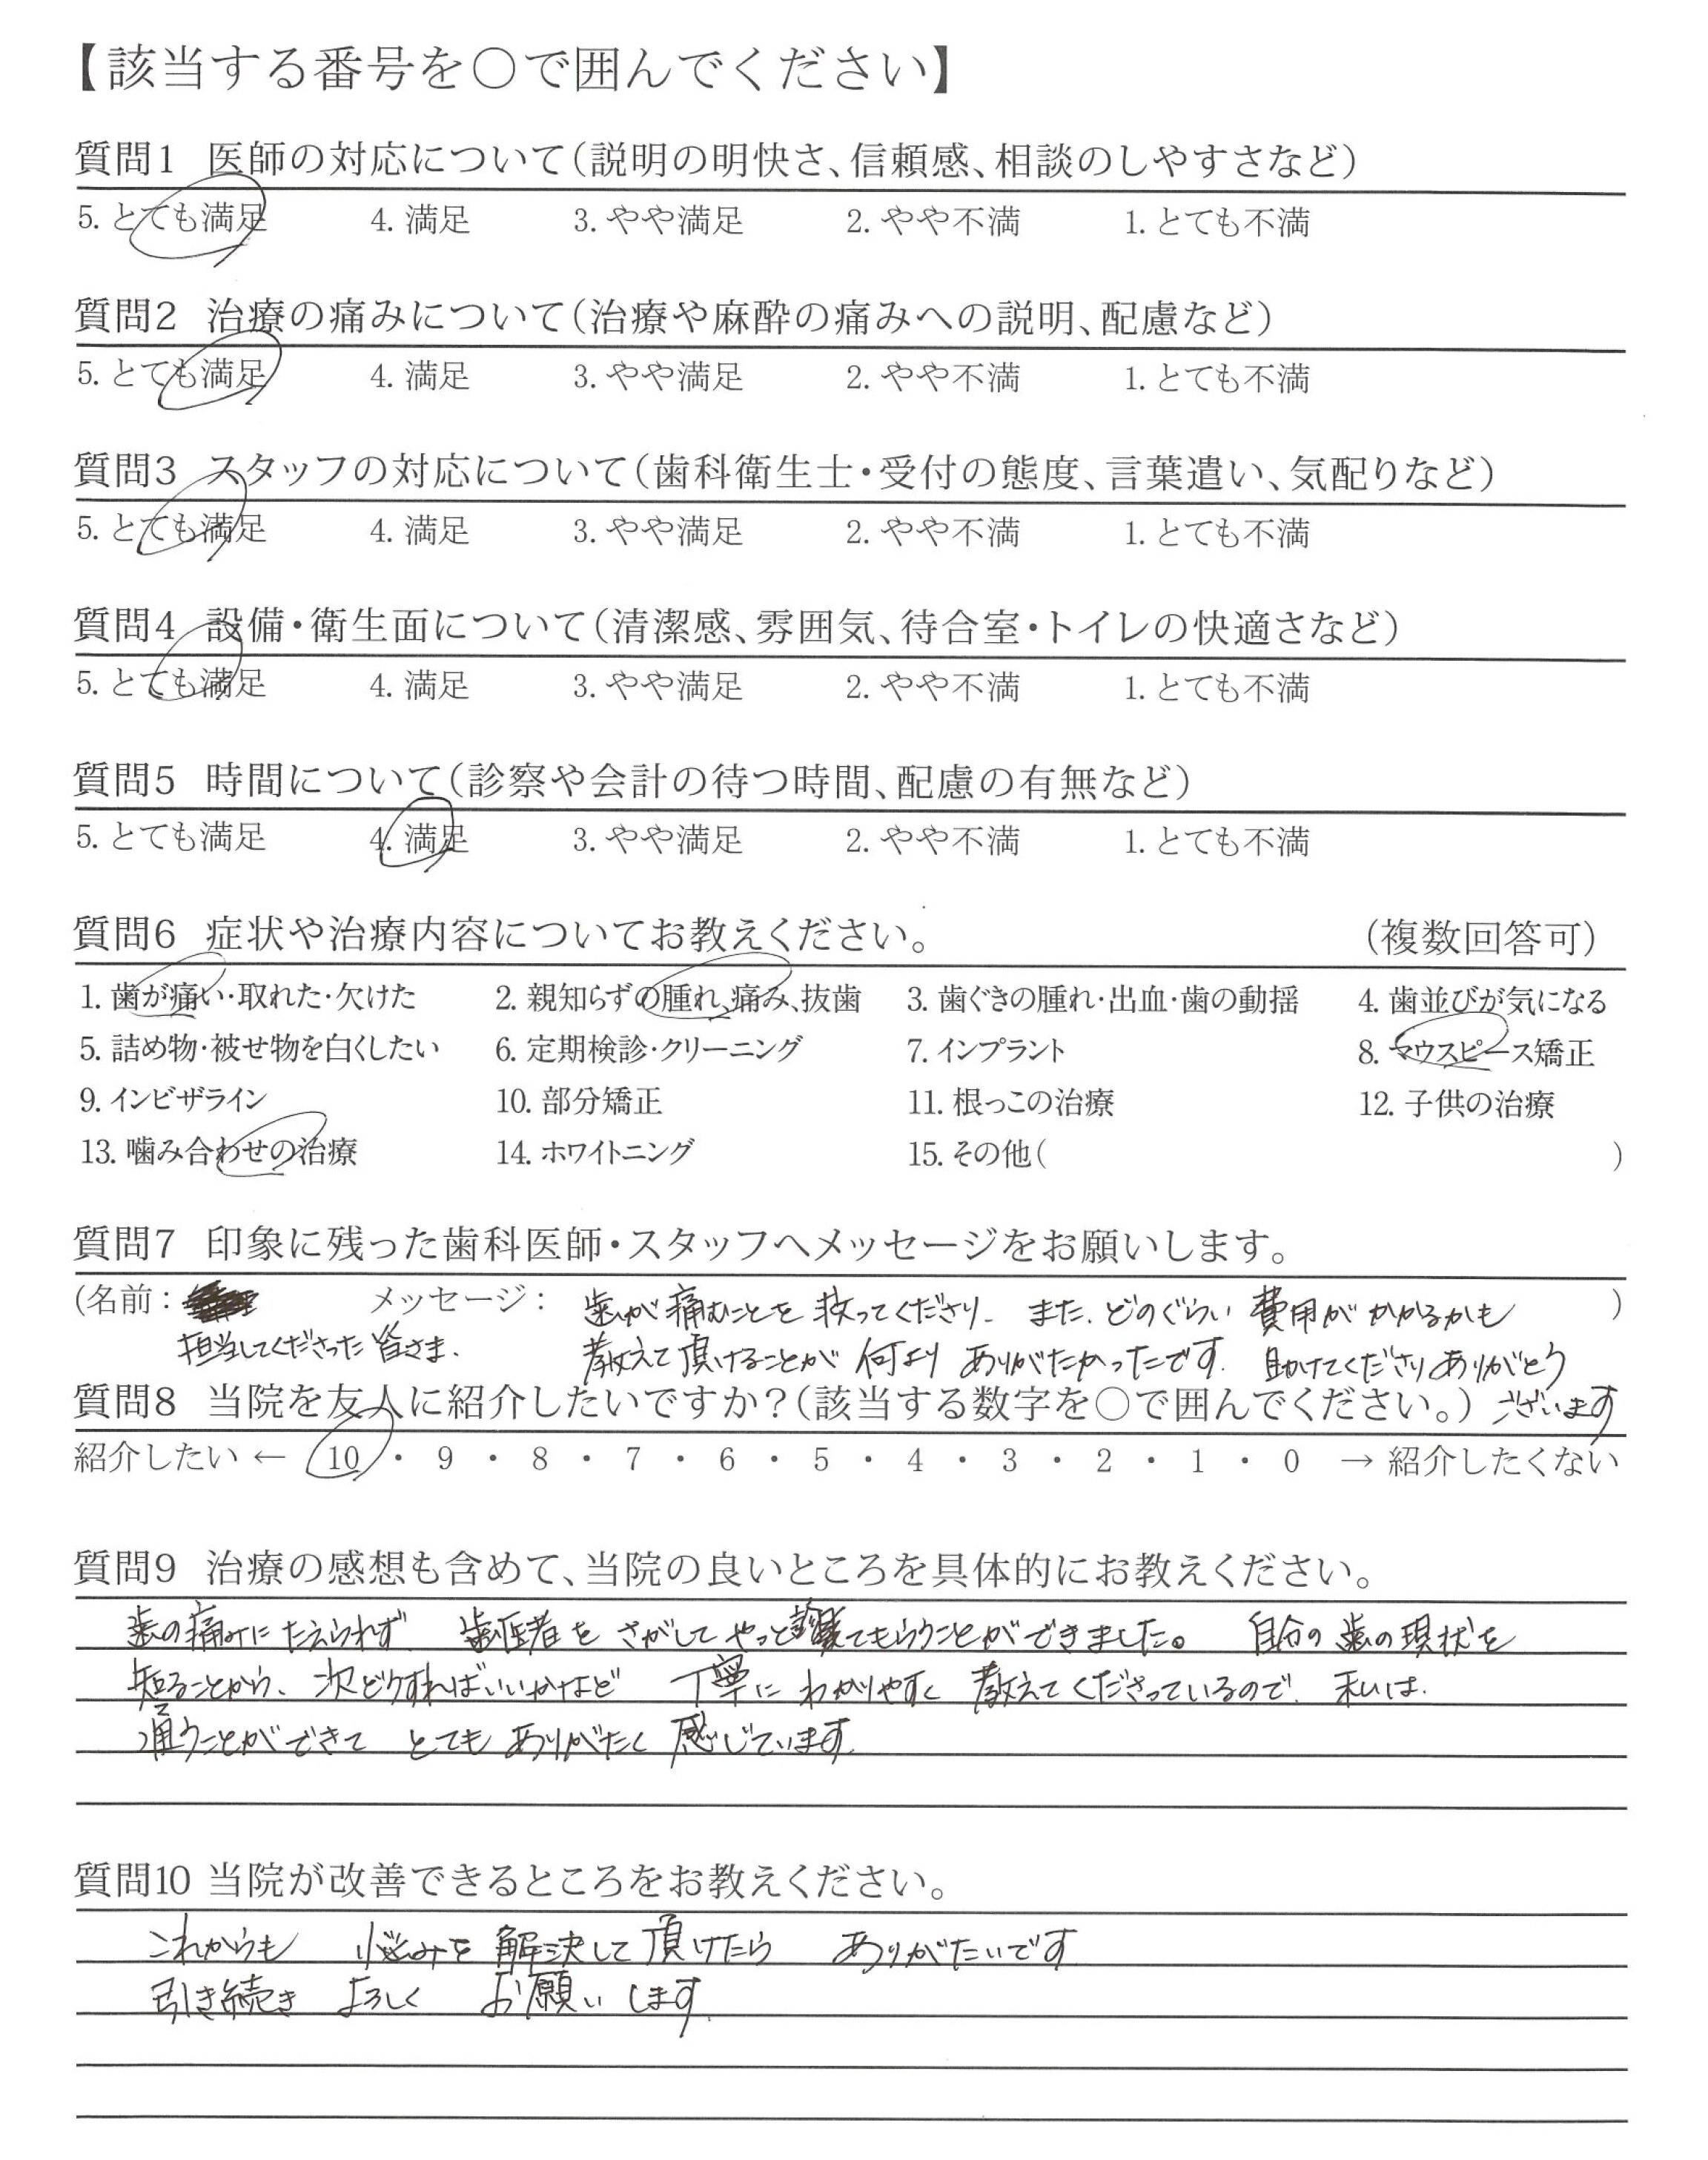 【該当する番号を○で囲んでください】
質問1 医師の対応について（説明の明快さ、信頼感、相談のしやすさなど）
5. とても満足 4. 満足 3. やや満足 2. やや不満 1. とても不満
質問2 治療の痛みについて（治療や麻酔の痛みへの説明、配慮など）
5. とても満足 4. 満足 3. やや満足 2. やや不満 1. とても不満
質問3 スタッフの対応について（歯科衛生士・受付の態度、言葉遣い、気配りなど）
5. とても満足 4. 満足 3. やや満足 2. やや不満 1. とても不満
質問4 設備・衛生面について（清潔感、雰囲気、待合室・トイレの快適さなど）
5. とても満足 4. 満足 3. やや満足 2. やや不満 1. とても不満
質問5 時間について（診察や会計の待つ時間、配慮の有無など）
5. とても満足 4. 満足 3. やや満足 2. やや不満 1. とても不満
質問6 症状や治療内容についてお教えください。 （複数回答可）
1. 歯が痛い・取れた・欠けた 2. 親知らずの腫れ、痛み、抜歯 3. 歯ぐきの腫れ・出血・歯の動揺 4. 歯並びが気になる
5. 詰め物・被せ物を白くしたい 6. 定期検診・クリーニング 7. インプラント 8. マウスピース矯正
9. インビザライン 10. 部分矯正 11. 根っこの治療 12. 子供の治療
13. 噛み合わせの治療 14. ホワイトニング 15. その他（ ）
質問7 印象に残った歯科医師・スタッフへメッセージをお願いします。
（名前： メッセージ： 歯が痛むことを救ってくださり、また、どのぐらい費用がかかるかも ）
担当してくださった皆さま、 教えて頂けることが何よりありがたかったです。助けてくださりありがとう
質問8 当院を友人に紹介したいですか？（該当する数字を○で囲んでください。） ございます
紹介したい ← 10 ・ 9 ・ 8 ・ 7 ・ 6 ・ 5 ・ 4 ・ 3 ・ 2 ・ 1 ・ 0 → 紹介したくない
質問9 治療の感想も含めて、当院の良いところを具体的にお教えください。
歯の痛みにたえられず、歯医者をさがしてやっと診てもらうことができました。自分の歯の現状を
知ることから、次どうすればいいかなど 丁寧にわかりやすく教えてくださっているので、私は、
通うことができてとてもありがたく感じています。
質問10 当院が改善できるところをお教えください。
これからも 悩みを解決して頂けたら ありがたいです
引き続き よろしく お願いします。